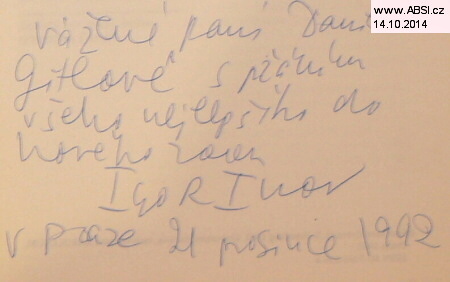 www.ABSI.cz
14.10.2014
vážené paní Daně
Gitlové s přáním
všeho nejlepšího do
nového roku
Igor Inov
V Praze 21 prosince 1992